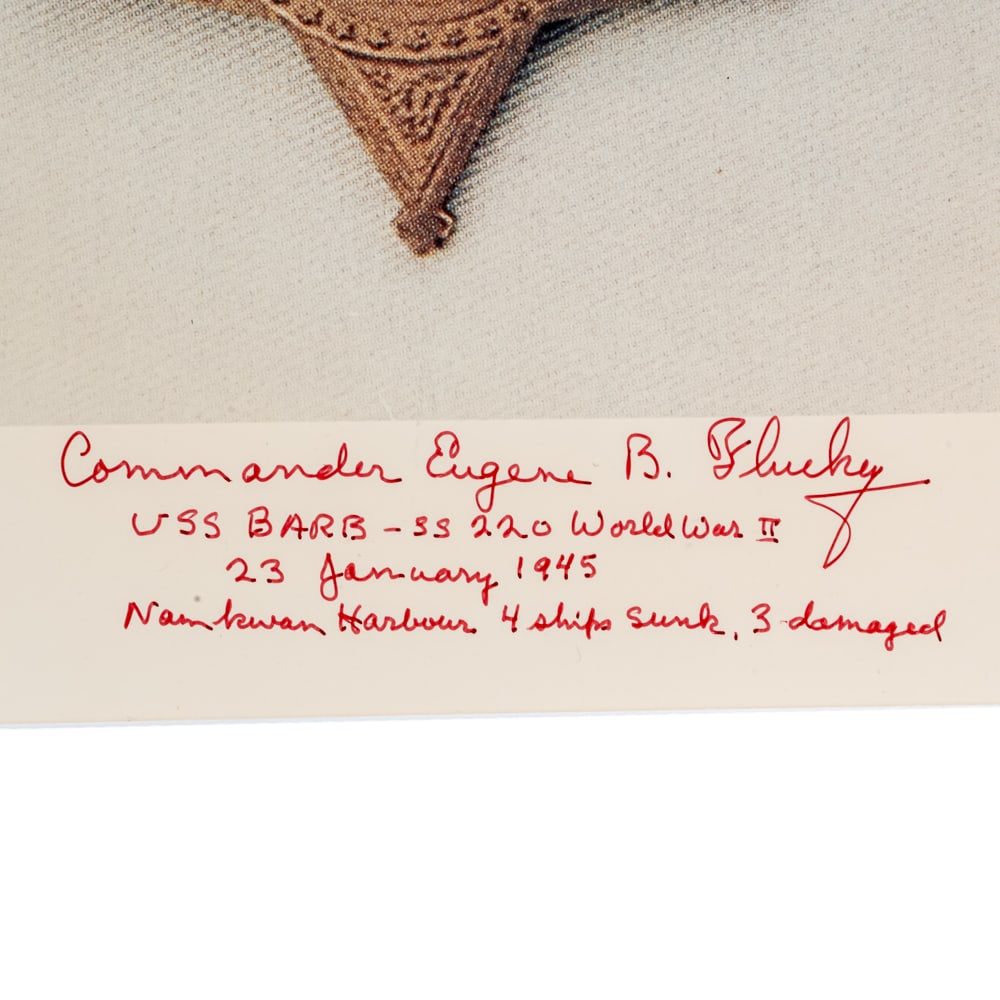 Commander Eugene B. Fluckey
USS BARB - SS 220 World War II
23 January 1945
Namkwan Harbour 4 ships sunk, 3 damaged